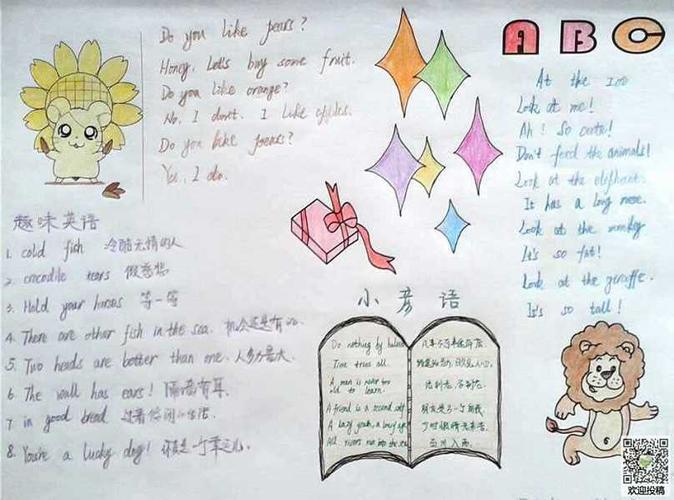 Do you like pears?
Honey, Let's buy some fruit.
Do you like orange?
No, I don't. I like apples.
Do you like pears?
Yes, I do.
趣味英语
1. cold fish 冷酷无情的人
2. crocodile tears 假慈悲
3. Hold your horses 等一等
4. There are other fish in the sea. 机会还是有的.
5. Two heads are better than one. 人多力量大.
6. The wall has ears! 隔墙有耳.
7. in good bread 过着悠闲的生活
8. You're a lucky dog! 你真是一个幸运儿.
A B C
At the zoo
Look at me!
Ah! So cute!
Don't feed the animals!
Look at the elephant.
It has a long nose.
Look at the monkey
It's so fat!
Look at the giraffe.
It's so tall!
小彦语
Do nothing by halves
Time tries all.
A man is never too
old to learn.
A friend is a second self
A lazy youth, a lousy age
All rivers run into the sea
凡事不可半途而废
活到老, 学到老.
朋友是另一个自我
少时懒惰老来苦.
百川入海.
欢迎投稿